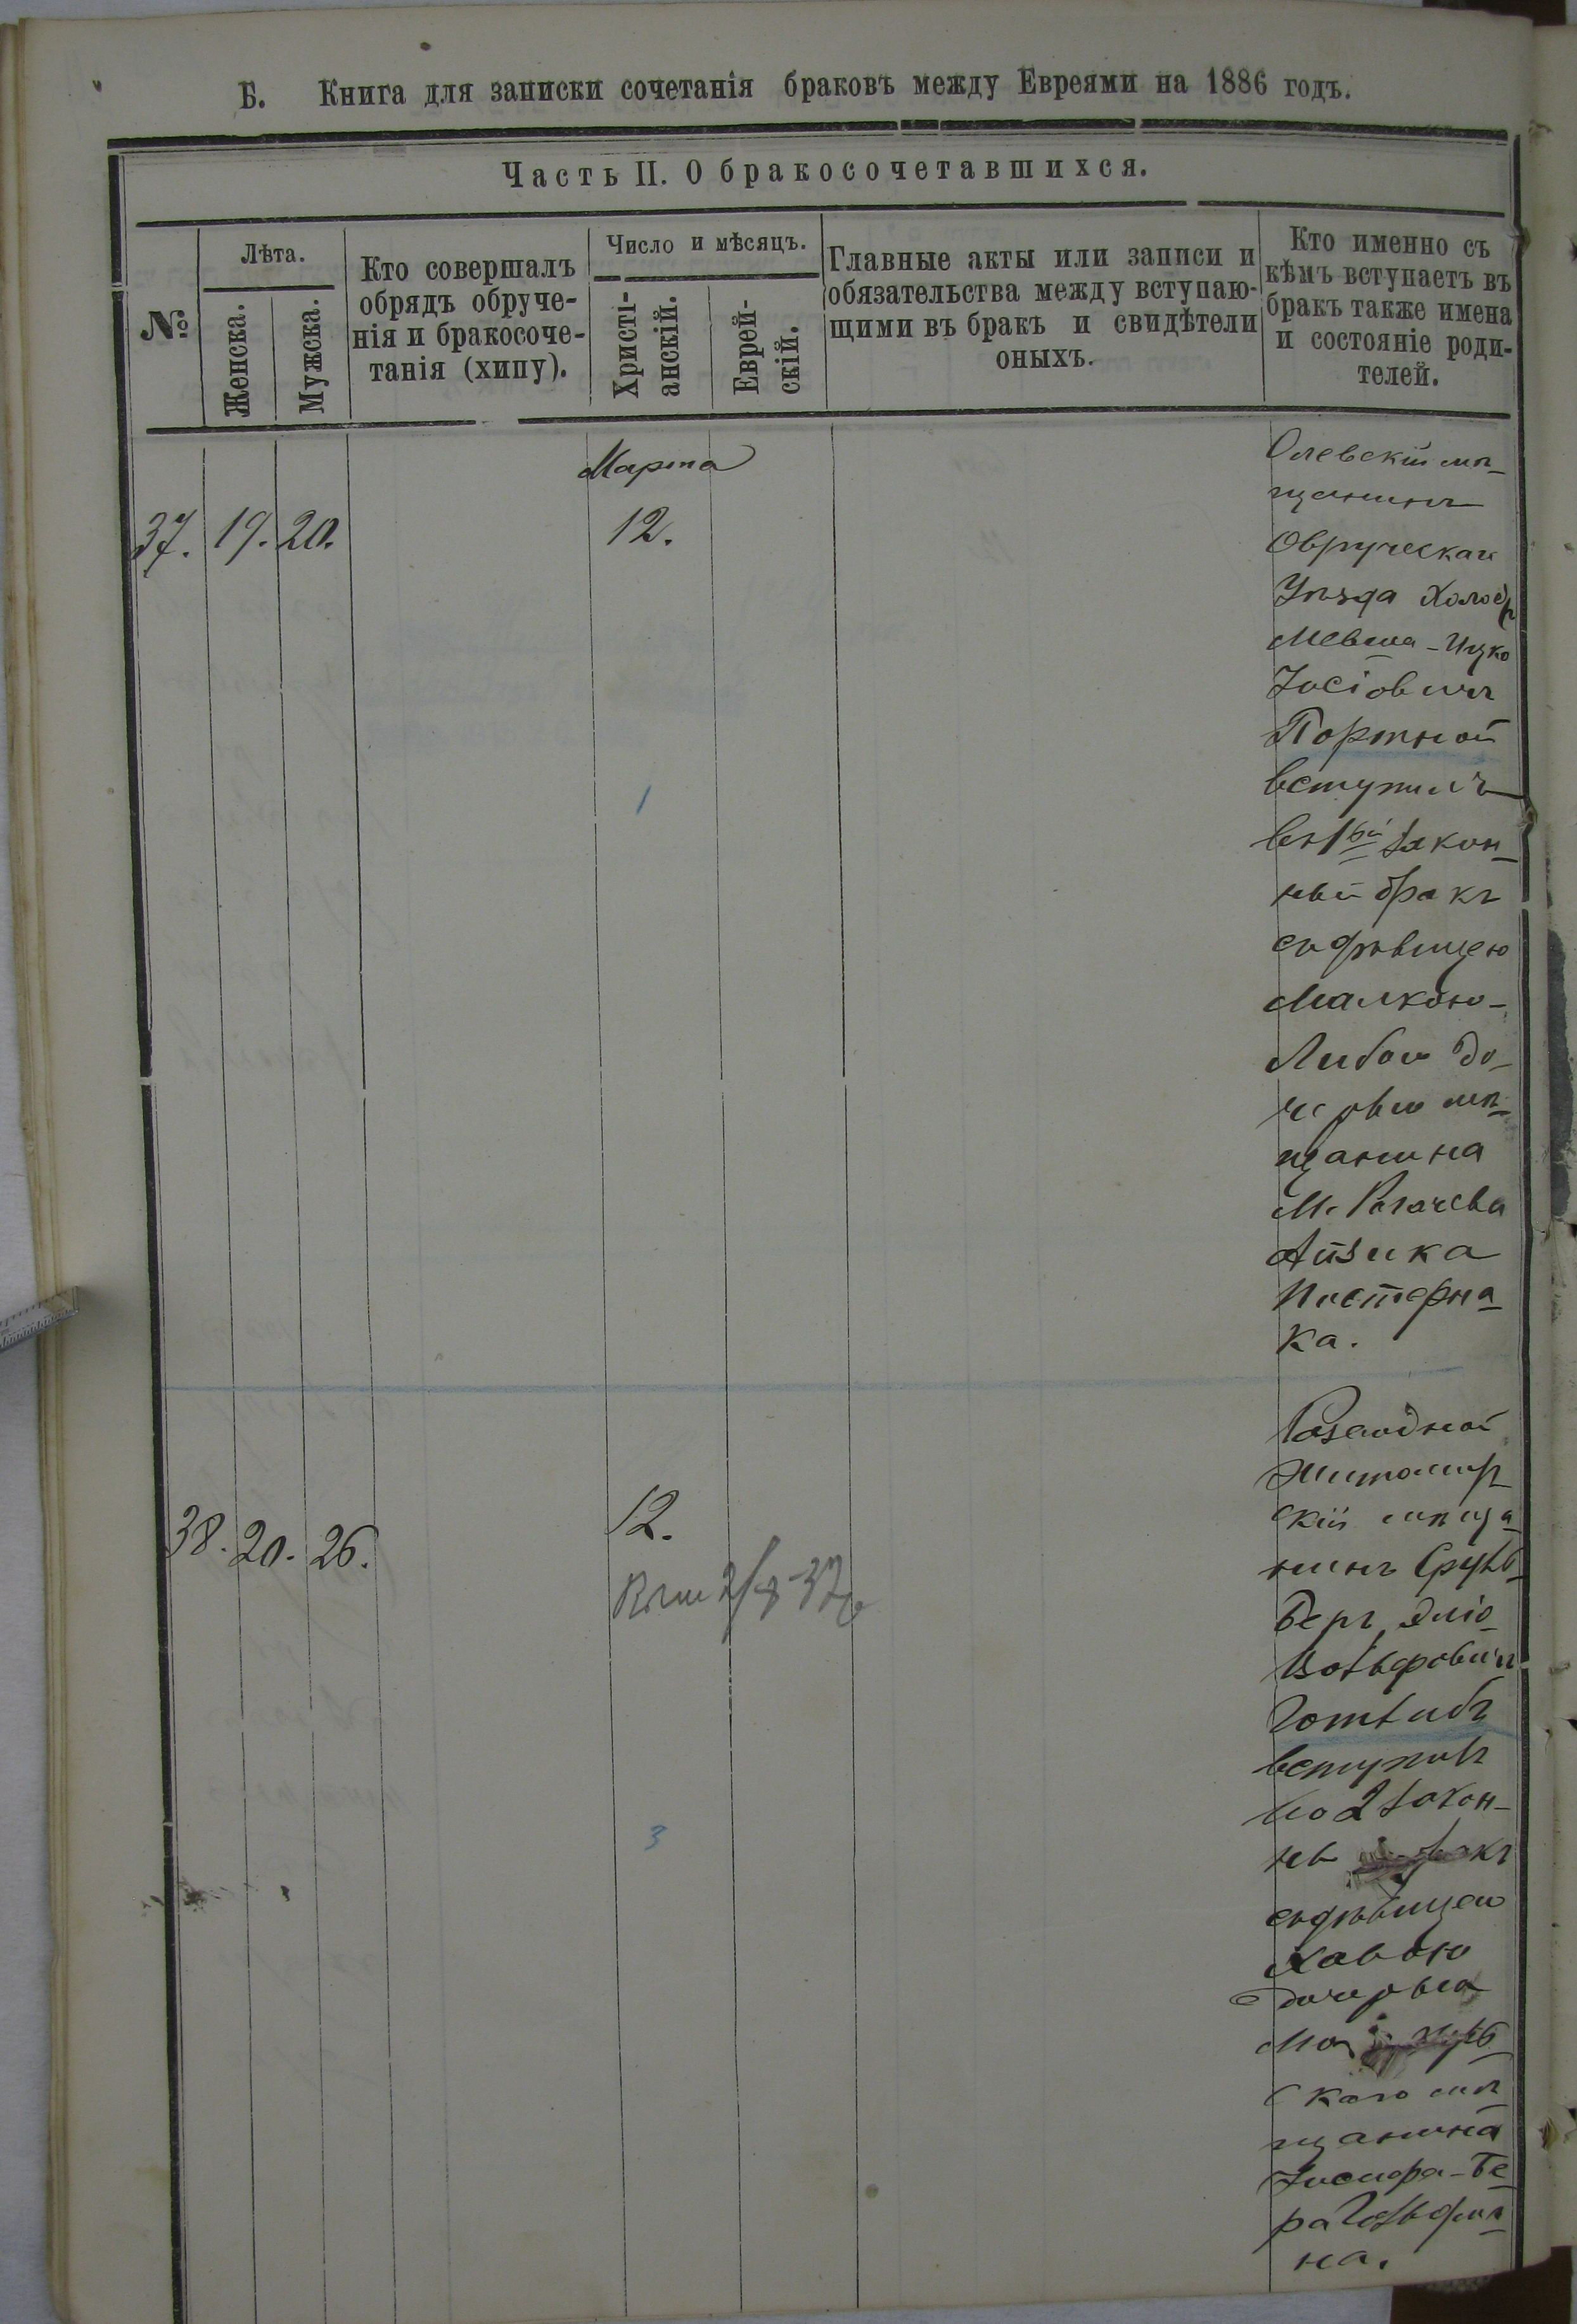 Б. Книга для записки сочетанія браковъ между Евреями на 1886 годъ.
Часть II. О бракосочетавшихся.
№
Лѣта.
Женска.
Мужска.
Кто совершалъ
обрядъ обруче-
нія и бракосоче-
танія (хипу).
Число и мѣсяцъ.
Христі-
анскій.
Еврей-
скій.
Главные акты или записи и
обязательства между вступаю-
щими въ бракъ и свидѣтели
оныхъ.
Кто именно съ
кѣмъ вступаетъ въ
бракъ также имена
и состояніе роди-
телей.
Марта
37. 19. 20. 12.
Олевскій мѣ-
щанинъ
Овручскаго
Уѣзда Холос.
Мевша-Ицко
Іосіовичъ
Портной
вступилъ
въ 1ый закон-
ный бракъ
съ дѣвицею
Малкою-
Либою до-
черью мѣ-
щанина
М. Рогачева
Айзика
Пастерна-
ка.
1
38. 20. 26. 12.
Разводной
Житомир-
скій мѣща-
нинъ Сруль-
Беръ Эліо-
Вольфовичъ
Готлибъ
вступилъ
во 2 закон-
ны бракъ
съ дѣвицею
Хавою
дочерью
скаго мѣ-
щанина
Іосифа-Бе-
ра Гольдма-
на.
3